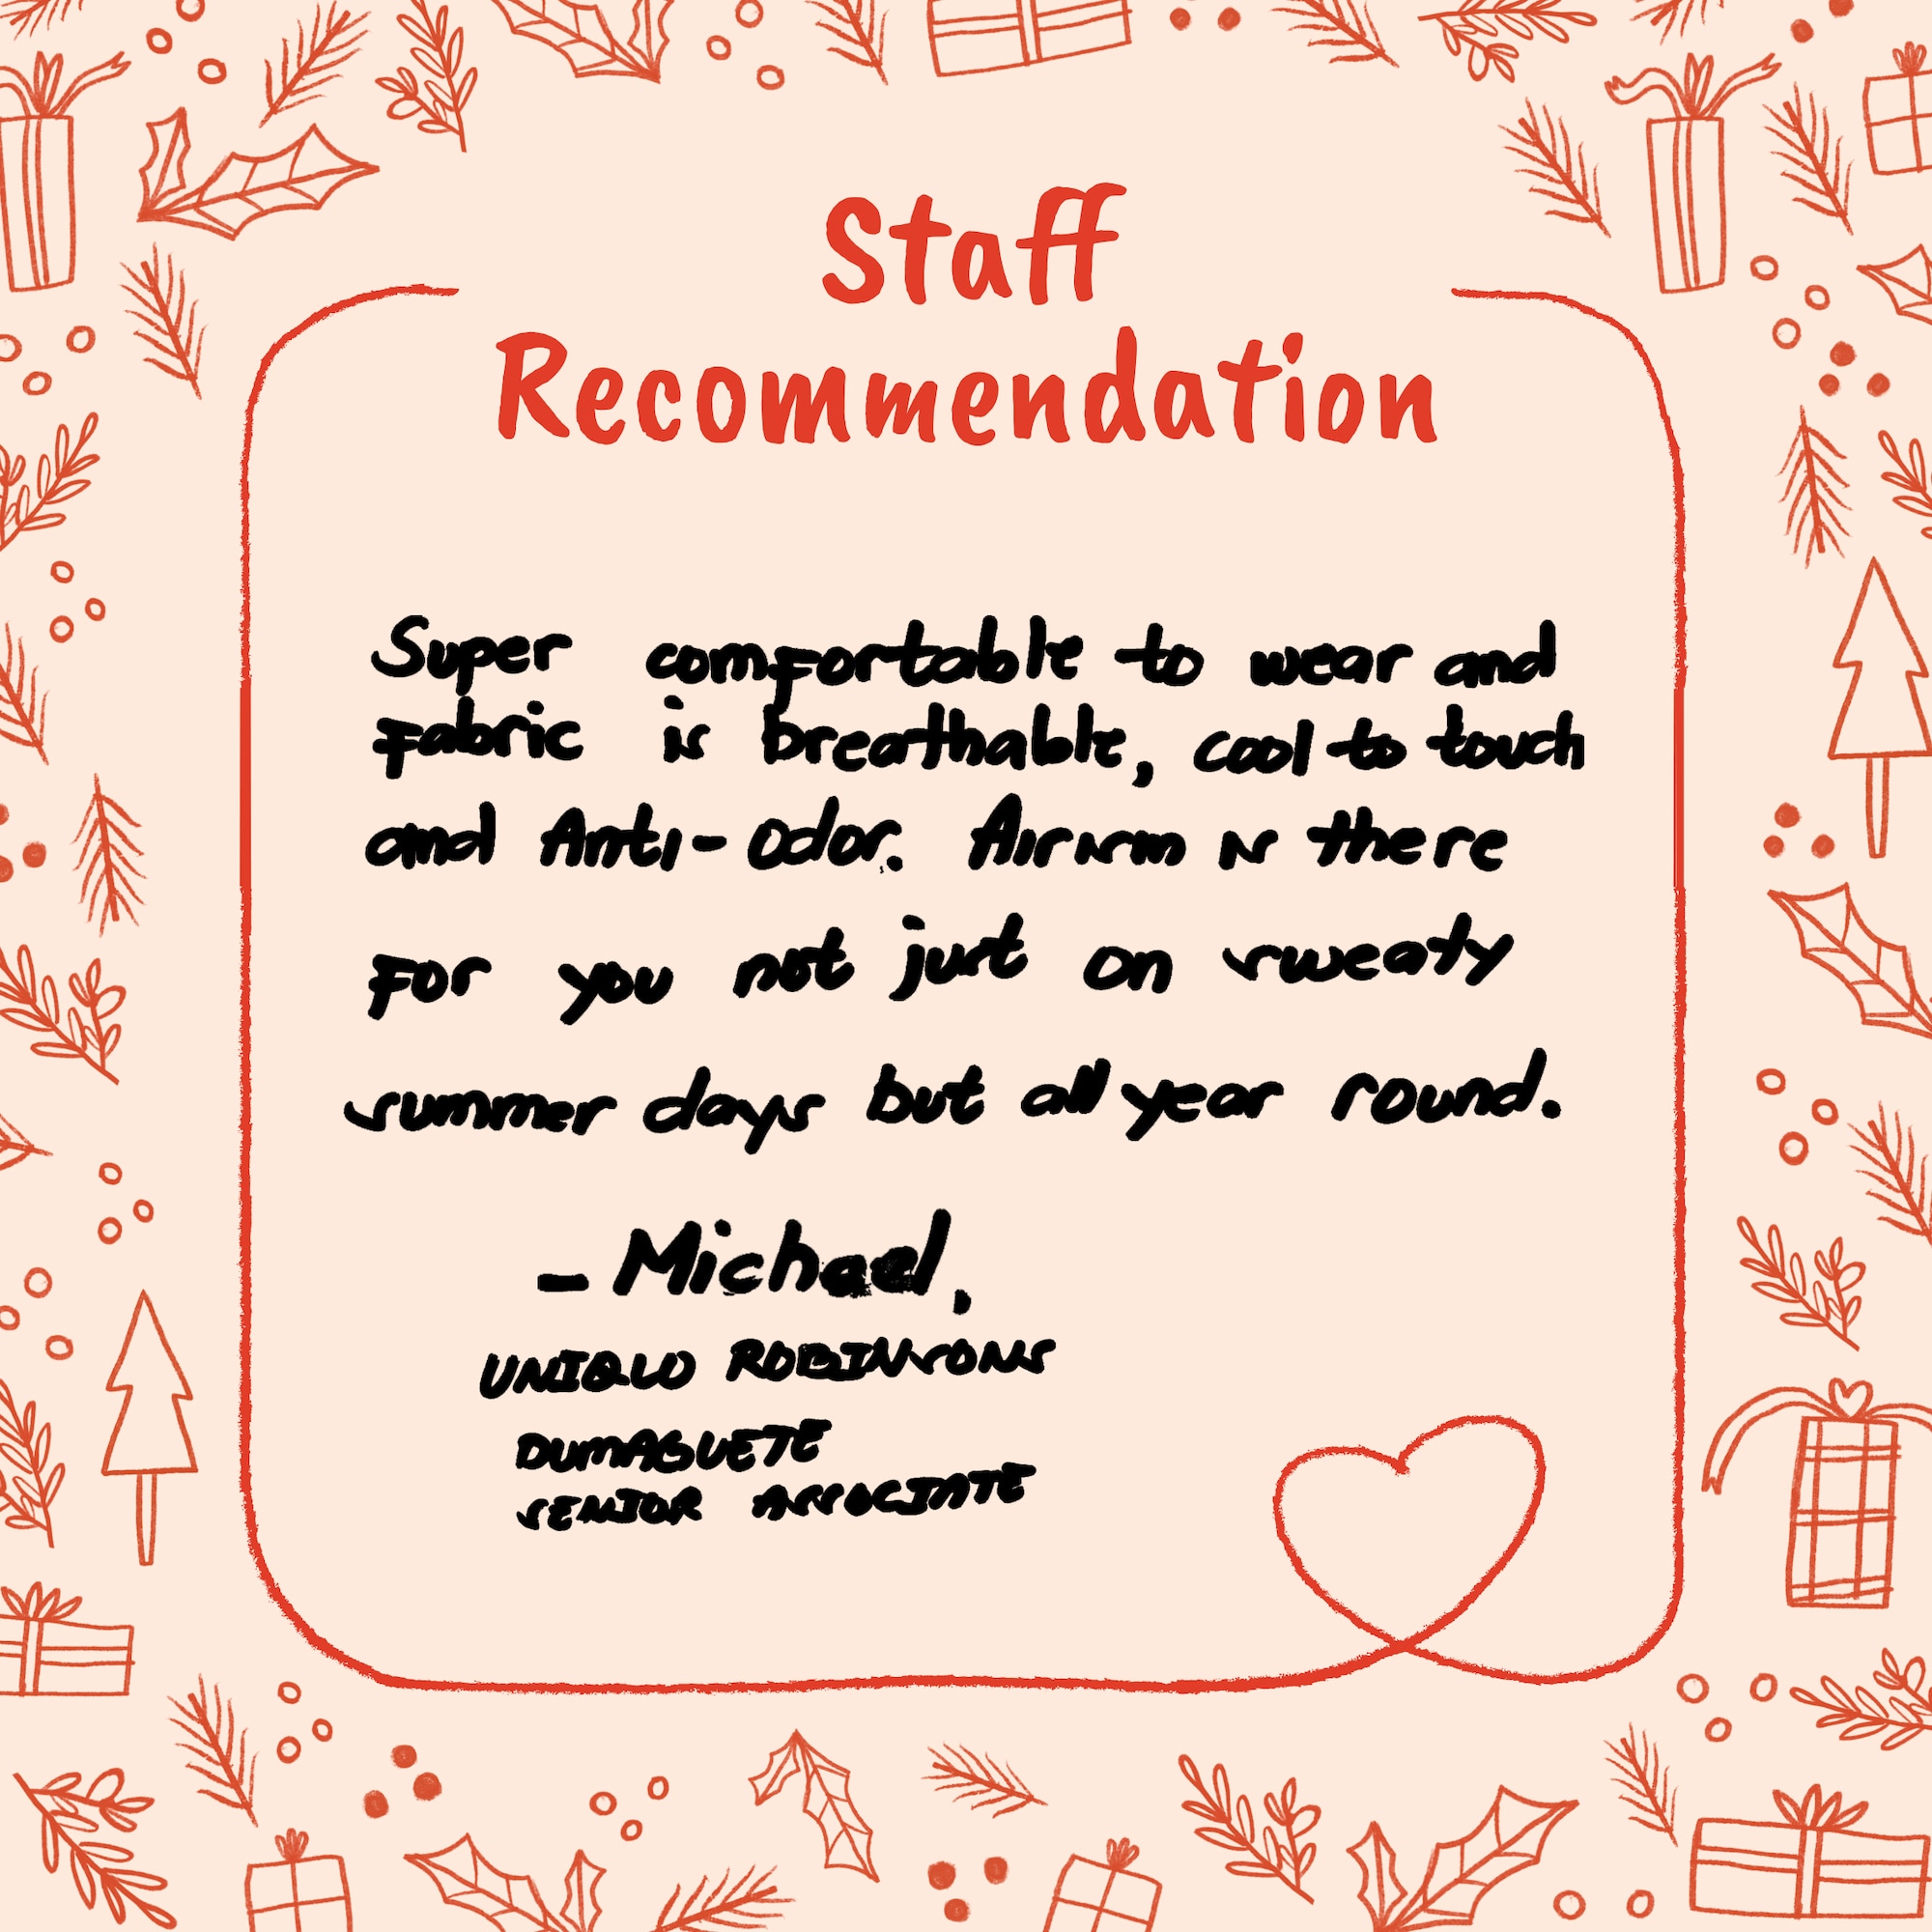 Staff
Recommendation
Super comfortable to wear and
Fabric is breathable, cool to touch
and Anti-Odor. Airism is there
For you not just on sweaty
summer days but all year round.
- Michael,
UNIQLO ROBINSONS
DUMAGUETE
SENIOR ASSOCIATE